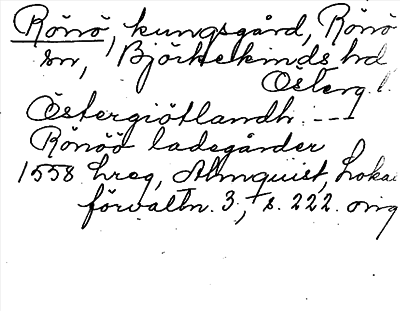 Rönö, kungsgård, Rönö
sn, Björkekinds hd
Österg. l.
Östergiötlandh. ---
Rönöö ladsgårder
1558 hreg, Almquist, Loka
förvaltn. 3, s. 222. orig